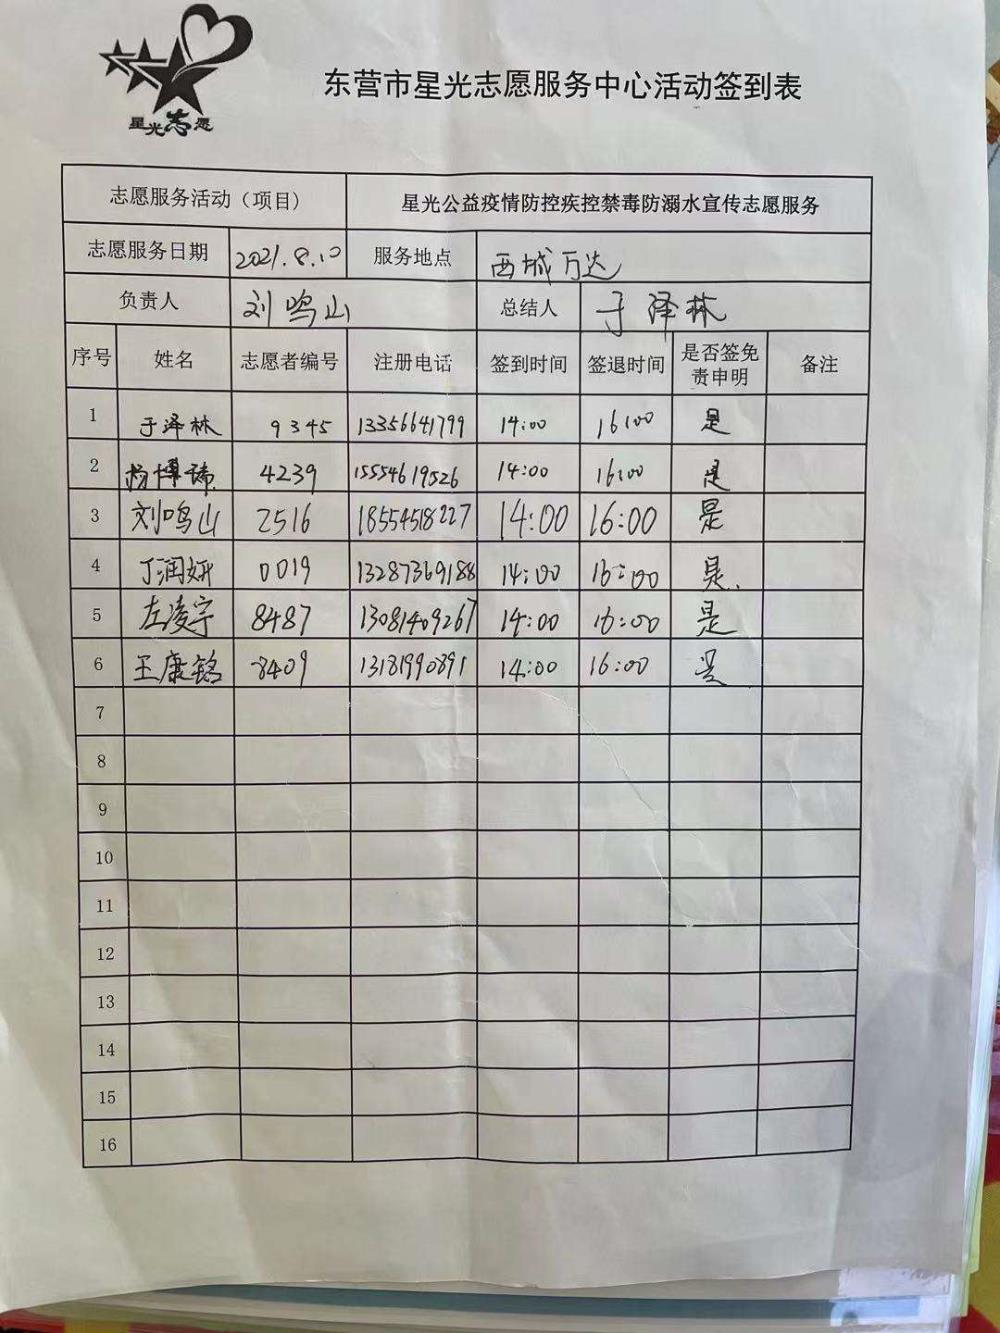 星光志愿
东营市星光志愿服务中心活动签到表
志愿服务活动（项目） 星光公益疫情防控疾控禁毒防溺水宣传志愿服务
志愿服务日期 2021.8.10 服务地点 西城万达
负责人 刘鸣山 总结人 于泽林
序号 姓名 志愿者编号 注册电话 签到时间 签退时间 是否签免责申明 备注
1 于泽林 9345 13356641799 14:00 16:00 是
2 杨博 4239 15554619526 14:00 16:00 是
3 刘鸣山 2516 18554518227 14:00 16:00 是
4 丁润妍 0019 13287369188 14:00 16:00 是.
5 左凌宇 8487 13081409267 14:00 16:00 是
6 王康铭 8409 13181990891 14:00 16:00 是
7
8
9
10
11
12
13
14
15
16